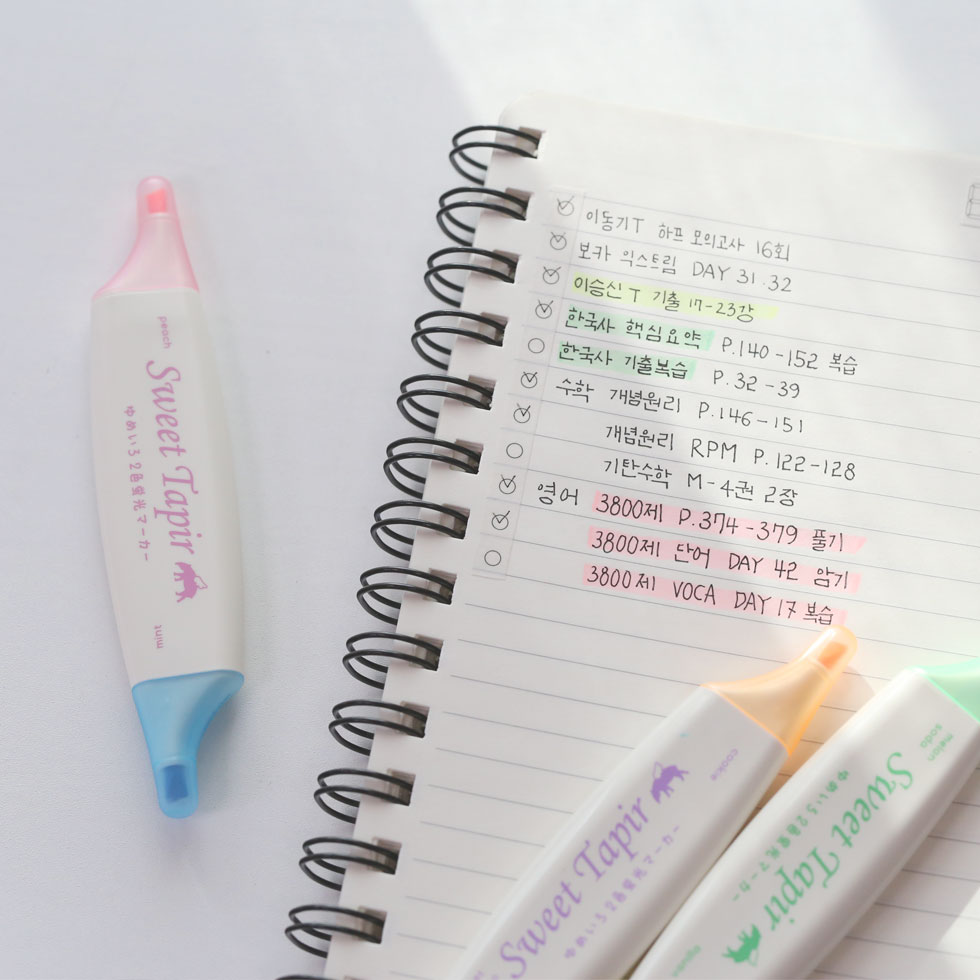 이동기T 하프 모의고사 16회
보카 익스트림 DAY 31.32
이승신 T 기출 17-23강
한국사 핵심요약 P.140-152 복습
한국사 기출복습 P.32-39
수학 개념원리 P.146-151
개념원리 RPM P.122-128
기탄수학 M-4권 2장
영어 3800제 P.374-379 풀기
3800제 단어 DAY 42 암기
3800제 VOCA DAY 17 복습
peach
Sweet Tapir
ゆめいろ2色蛍光マーカー
mint
cookie
Sweet Tapir
ゆめいろ2色蛍光マーカー
melon
soda
Sweet Tapir
ゆめいろ2色蛍光マーカー